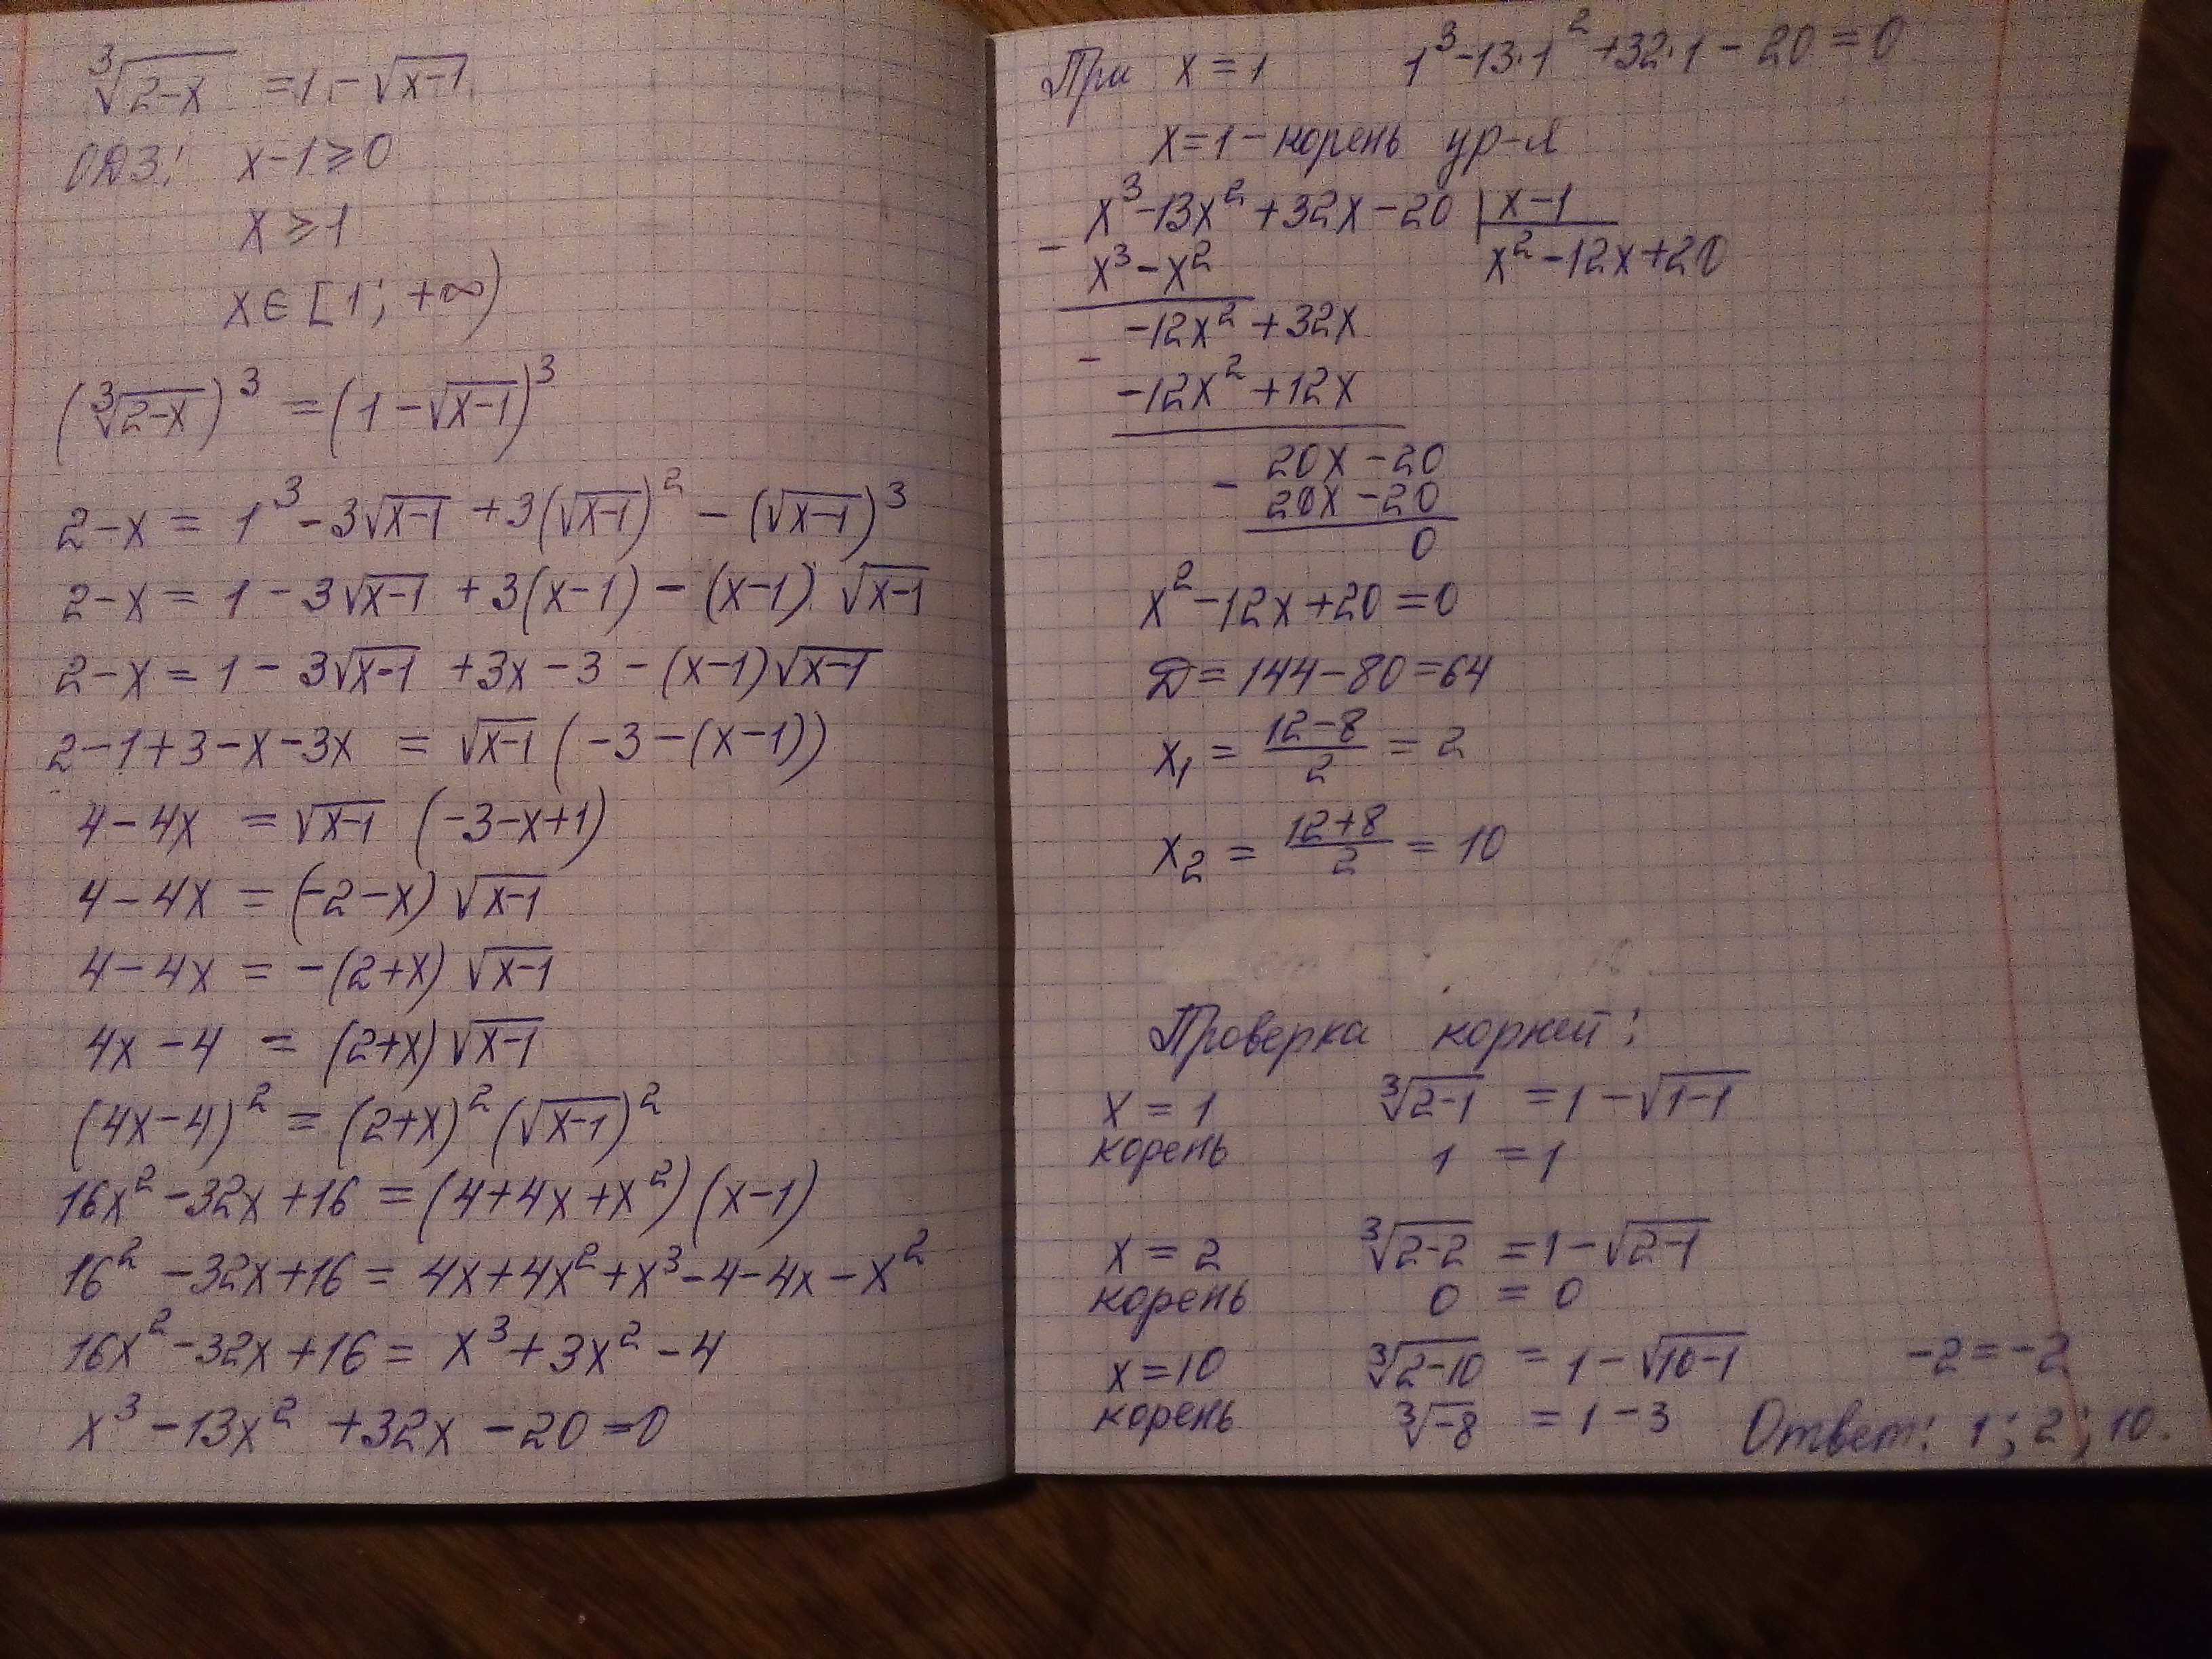 ∛(2-x) = 1 - √(x-1)
ОДЗ: x-1 ≥ 0
x ≥ 1
x ∈ [1; +∞)
(∛(2-x))³ = (1 - √(x-1))³
2-x = 1³ - 3√(x-1) + 3(√(x-1))² - (√(x-1))³
2-x = 1 - 3√(x-1) + 3(x-1) - (x-1) √(x-1)
2-x = 1 - 3√(x-1) + 3x - 3 - (x-1)√(x-1)
2-1+3-x-3x = √(x-1) (-3-(x-1))
4-4x = √(x-1) (-3-x+1)
4-4x = (-2-x) √(x-1)
4-4x = -(2+x) √(x-1)
4x-4 = (2+x) √(x-1)
(4x-4)² = (2+x)² (√(x-1))²
16x² - 32x + 16 = (4+4x+x²)(x-1)
16² - 32x + 16 = 4x+4x²+x³-4-4x-x²
16x² - 32x + 16 = x³+3x²-4
x³ - 13x² + 32x - 20 = 0
При x = 1 1³-13·1²+32·1-20=0
x=1 - корень ур-я
x³-13x²+32x-20 | x-1
- x³-x² x²-12x+20
-12x²+32x
- -12x²+12x
20x-20
- 20x-20
0
x²-12x+20=0
D=144-80=64
x₁ = (12-8)/2 = 2
x₂ = (12+8)/2 = 10
Проверка корней:
x = 1 ∛(2-1) = 1 - √(1-1)
корень 1 = 1
x = 2 ∛(2-2) = 1 - √(2-1)
корень 0 = 0
x = 10 ∛(2-10) = 1 - √(10-1) -2 = -2
корень ∛-8 = 1-3 Ответ: 1; 2; 10.